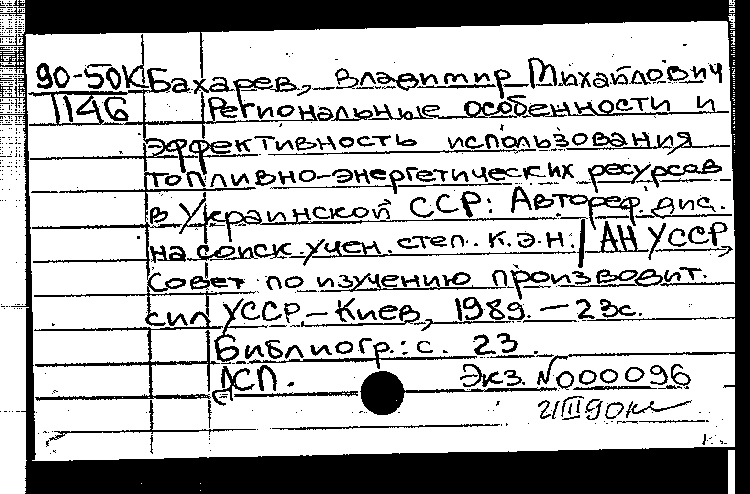 90-50К Бахарев, Владимир Михайлович
1146 Региональные особенности и
эффективность использования
топливно-энергетических ресурсов
в Украинской ССР: Автореф. дис.
на соиск. учен. степ. к.э.н. / АН УССР,
Совет по изучению производит.
сил УССР. - Киев, 1989. - 23с.
Библиогр.: с. 23.
ДСП. Экз. N000096